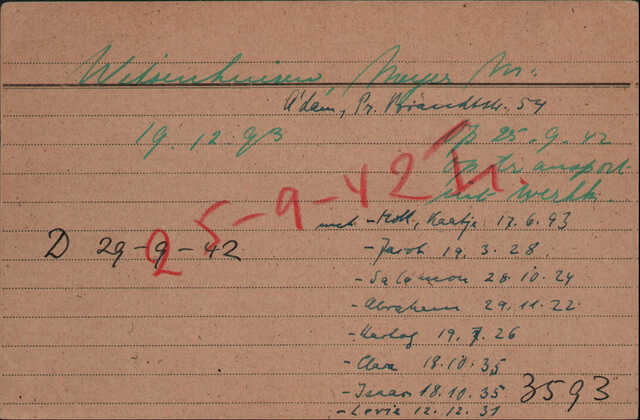 Witsenhuisen Meyer M.
A'dam, Pr. Brandtstr. 54
19.12.93 Op 25-9-42
op transport
uit Werkk.
25-9-42
mch - Mol, Kaatje 17.6.93
- Jacob 19.3.28.
D 29-9-42
- Salomon 28.10.24
- Abraham 29.11.22
- Hartog 19.7.26
- Clara 18.10.35
- Isaac 18.10.35
3593
- Levie 12.12.31